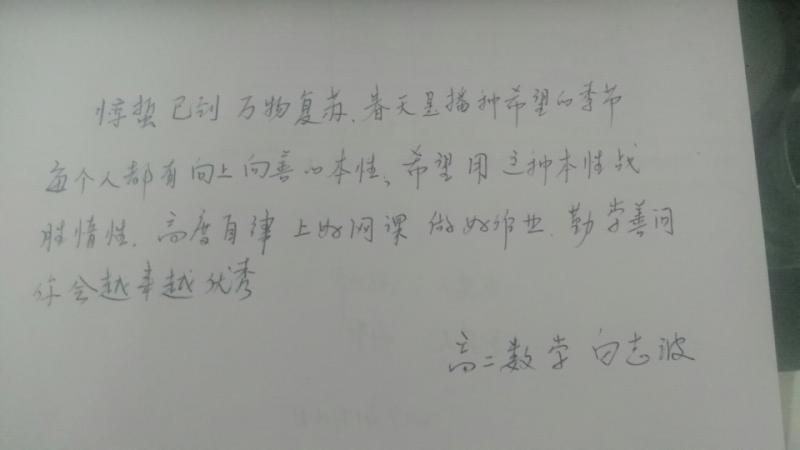 惊蛰已到 万物复苏、春天是播种希望的季节
每个人都有向上向善的本性、希望用这种本性战
胜惰性. 高度自律 上好网课 做好作业. 勤学善问
你会越来越优秀
高二数学 白志波